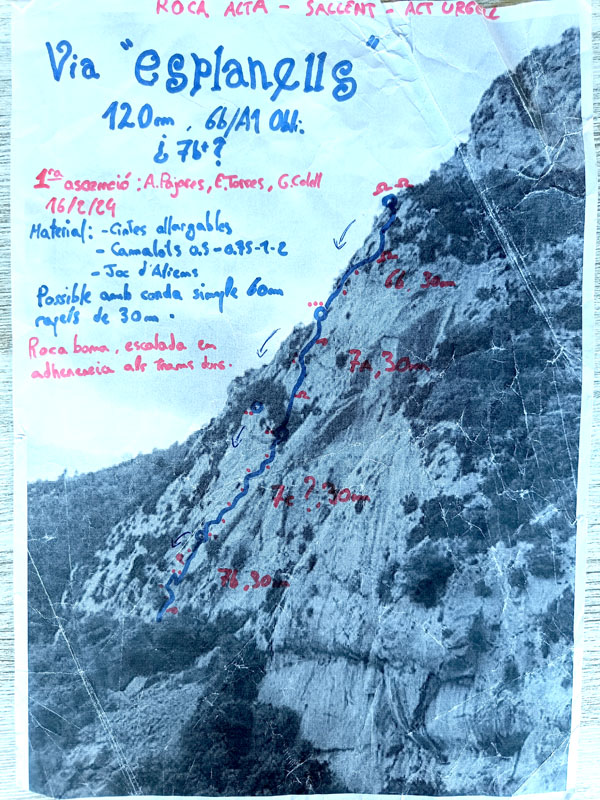 ROCA ALTA - SALLENT - ACT URGELL
Via "esplanells"
120m, 6b/A1 Obli.
¿ 7b+?
1ra ascenció: A.Pajares, E.Torres, G.Colell
16/2/24
Material: -Cintes allargables
- Camalots 0.5-0.75-1-2
- Joc d'Aliens
Possible amb corda simple 60m
rapels de 30m.
Roca bona, escalada en
adherencia als trams durs.
6b, 30m
7a, 30m
7c?, 30m
7b, 30m